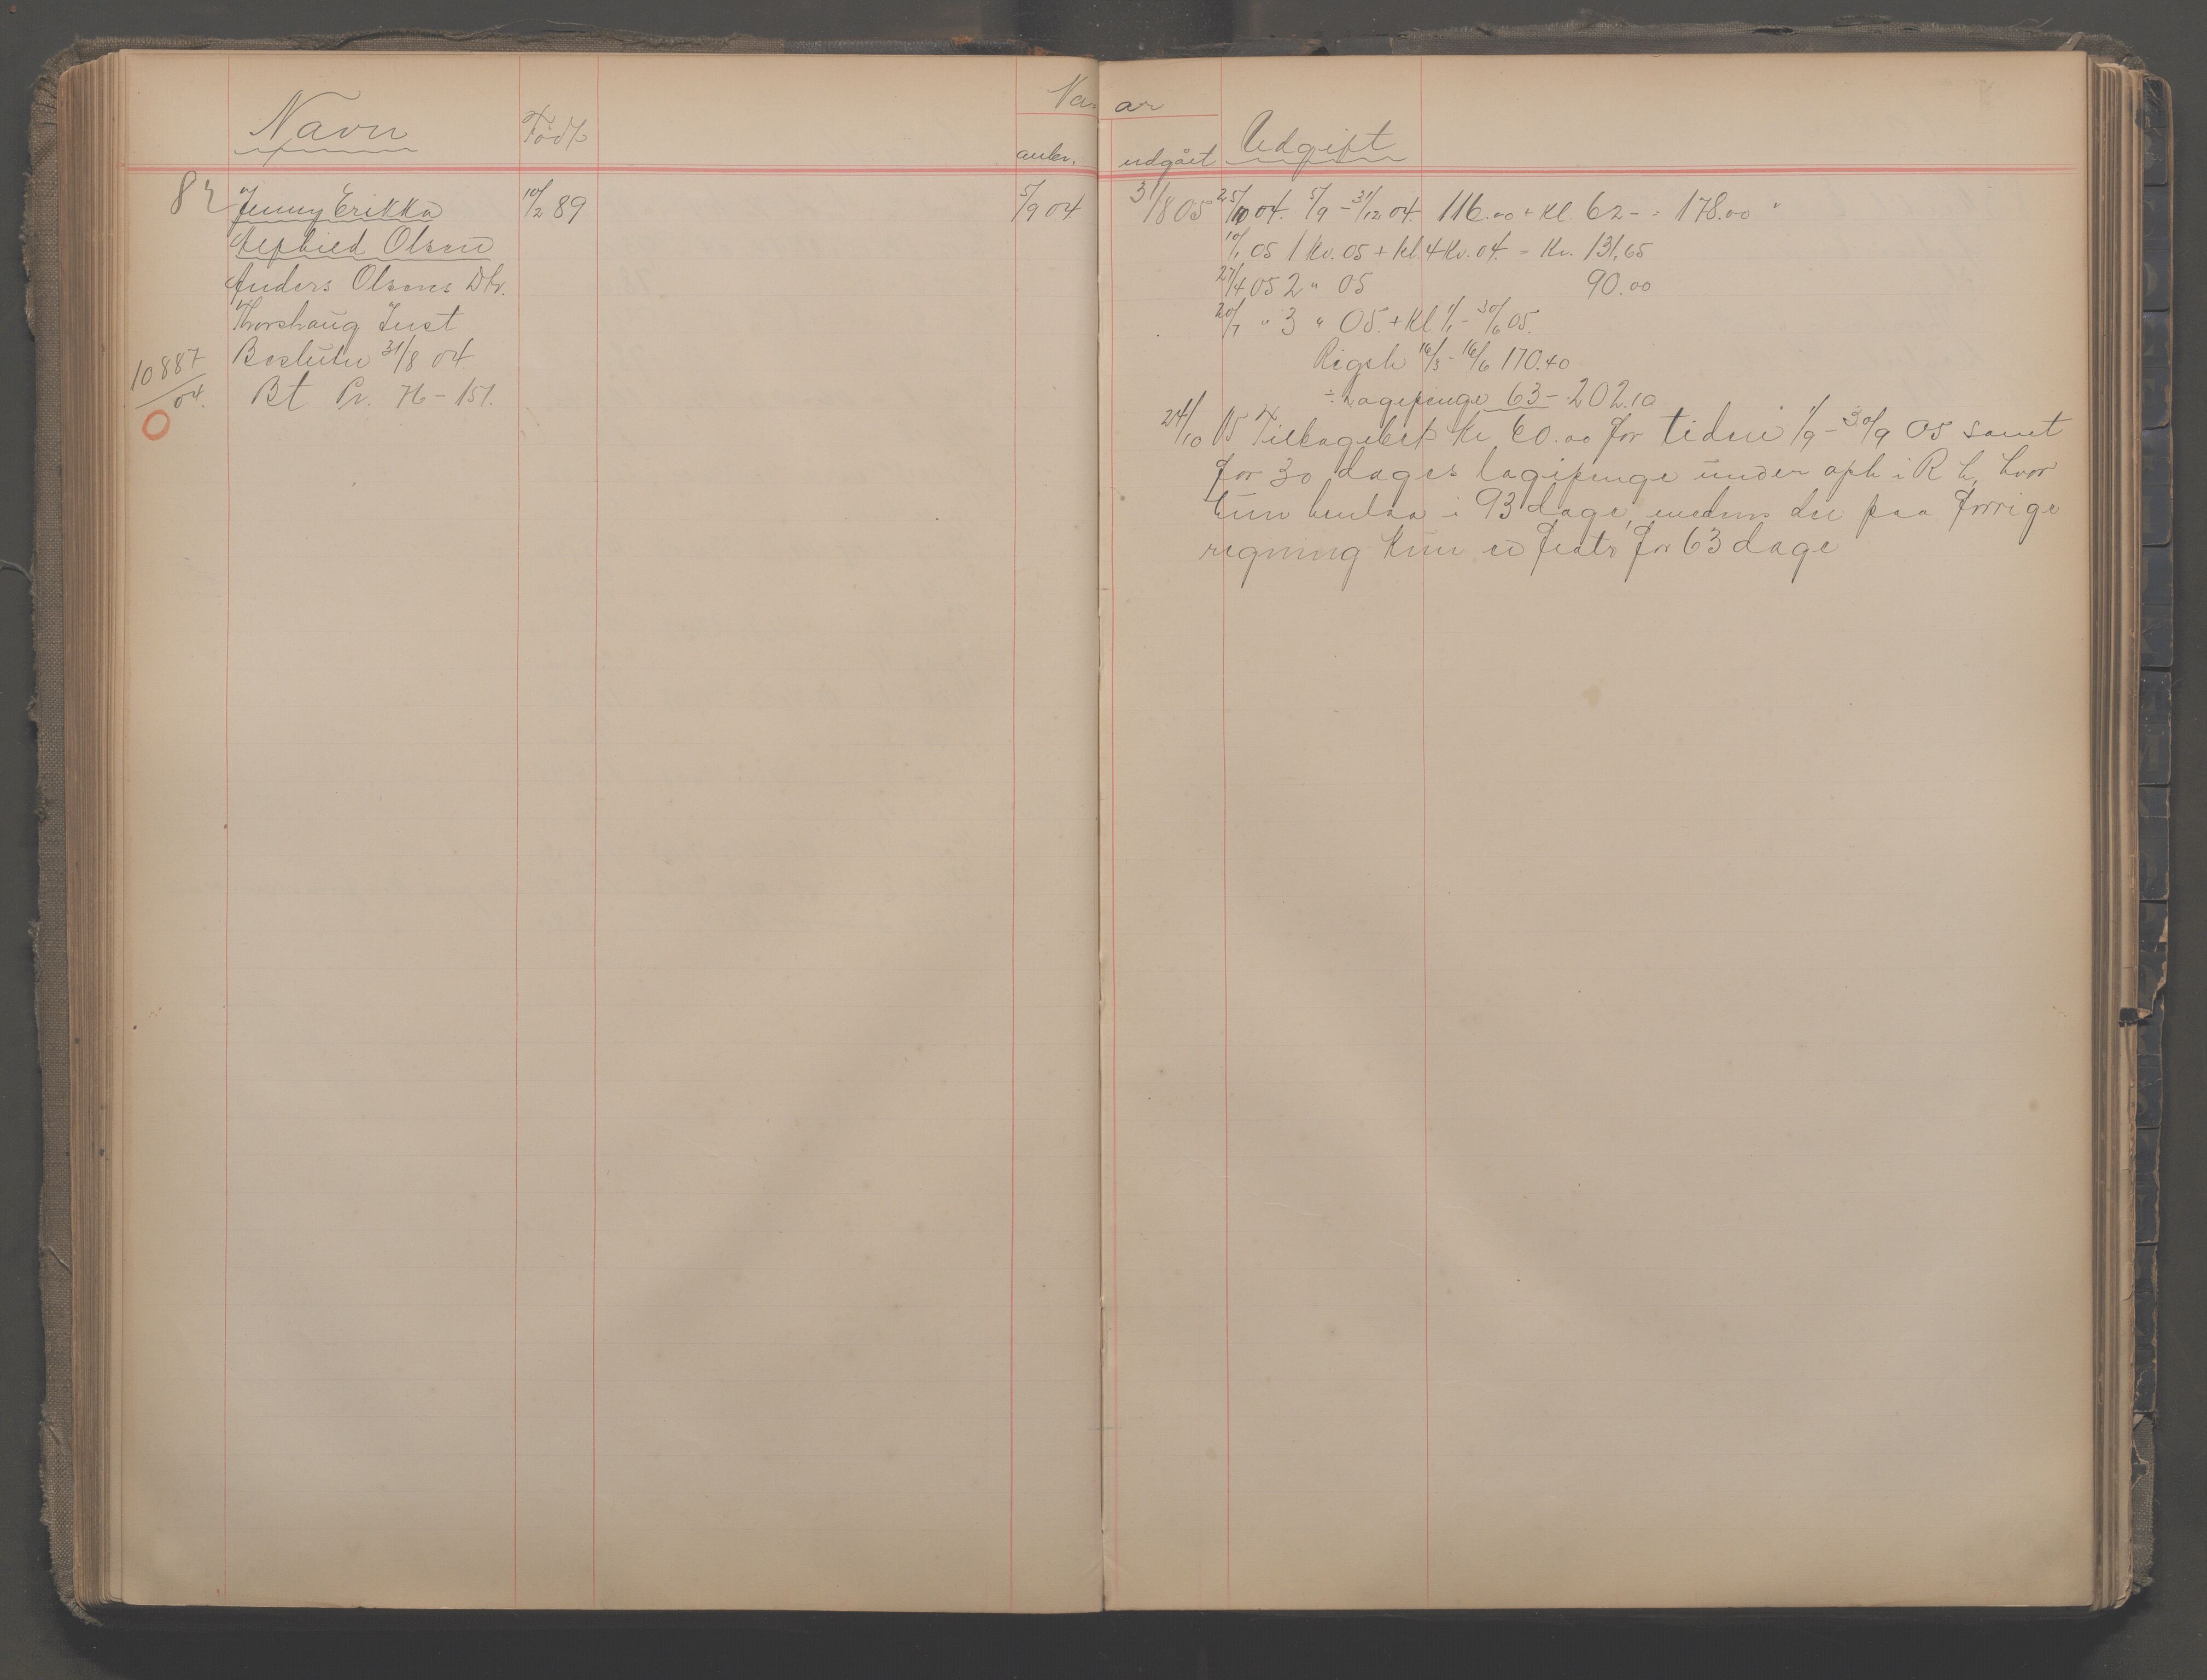 Navn
Född
Naar
ankr.
udgået
Udgift
82
Jenny Erikka
10/2 89
5/9 04
31/8 05
25/10 04. 5/9 - 31/12 04. 116.00 + Kl. 62 - = 178.00
Alfhild Olsen
10/1 05 1 Kv. 05 + Kl. 4 Kv. 04. = Kr. 131,65
Anders Olsens Dtr.
27/4 05 2 " 05 90.00
Thorshaug Inst
20/7 " 3 " 05. + Kl. 1/1 - 30/6 05.
10887/04.
Beslutn 31/8 04.
Rigsh 16/3 - 16/6 170.40
Bt Pr. 76 - 151.
÷ Dagepenge 63 - 202.10
24/10 05 Tilbagebet Kr 60.00 for tiden 1/9 - 30/9 05 samt
for 30 dages dagepenge under oph i R h, hvor
hun henlaa i 93 dage, medens der paa forrige
regning kun er fratr for 63 dage